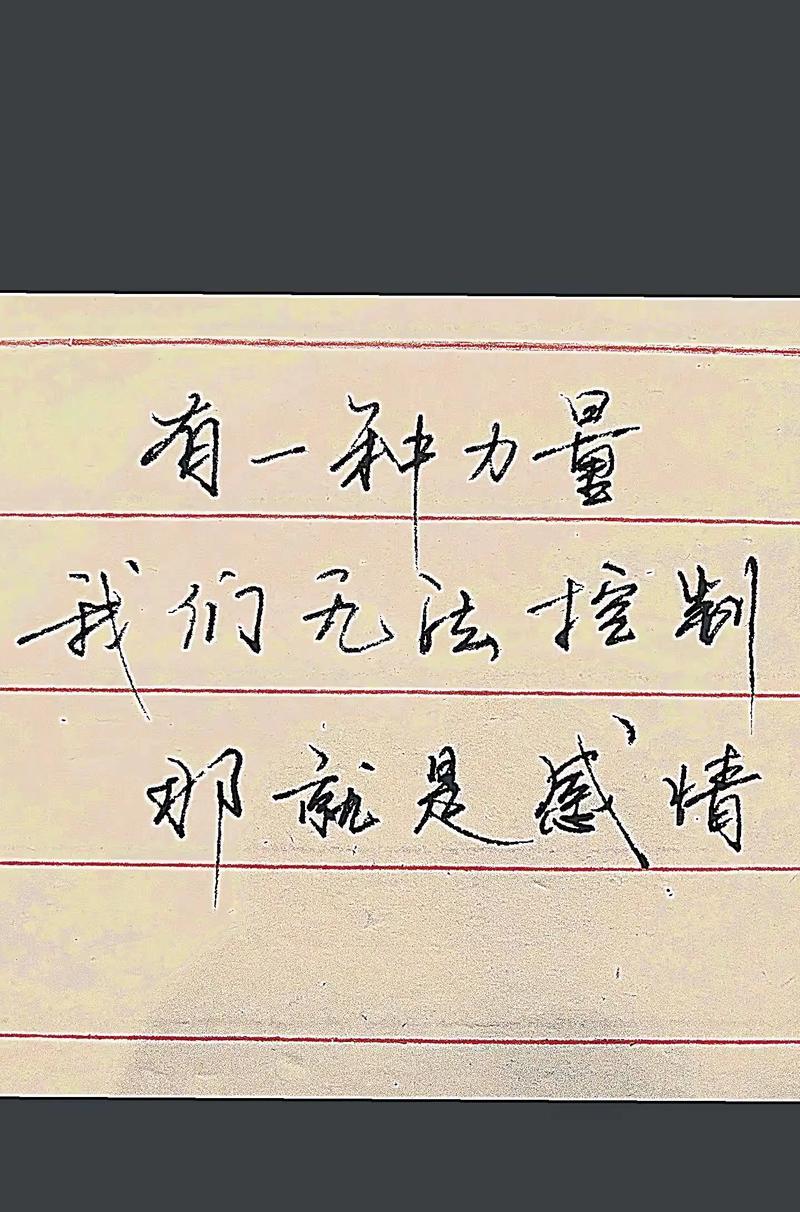 有一种力量
我们无法控制
那就是感情